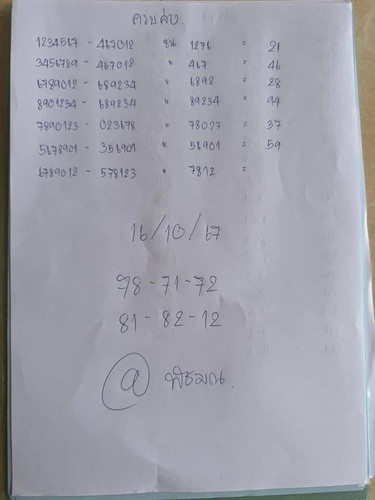 ครบสิบ.
1234567 - 467012 ชน 1276 = 21
3456789 - 467012 " 467 = 46
6789012 - 689234 " 6892 = 28
8901234 - 689234 " 89234 = 94
7890123 - 023678 " 78023 = 37
5678901 - 356901 " 56901 = 59
6789012 - 578123 " 7812 =
16/10/67
78-71-72
81-82-12
@